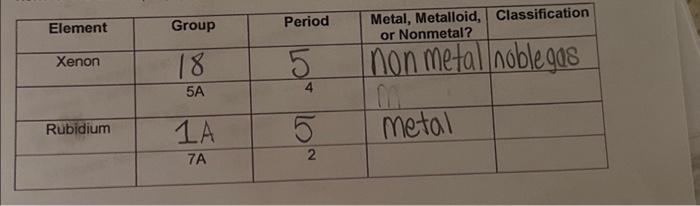 Element Group Period Metal, Metalloid, or Nonmetal? Classification
Xenon 18 5 non metal noble gas
5A 4 m
Rubidium 1A 5 metal
7A 2